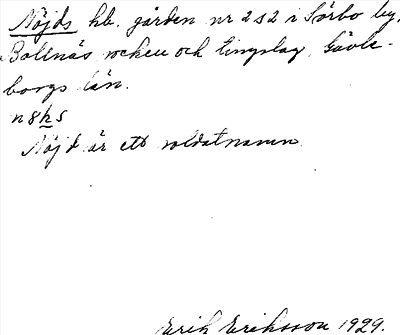 Nöjds hb. gården nr 2 s 2 i Sörbo by,
Bollnäs socken och tingslag, Gävle-
borgs län.
n8h5
Nöjd är ett soldatnamn
Erik Eriksson 1929.